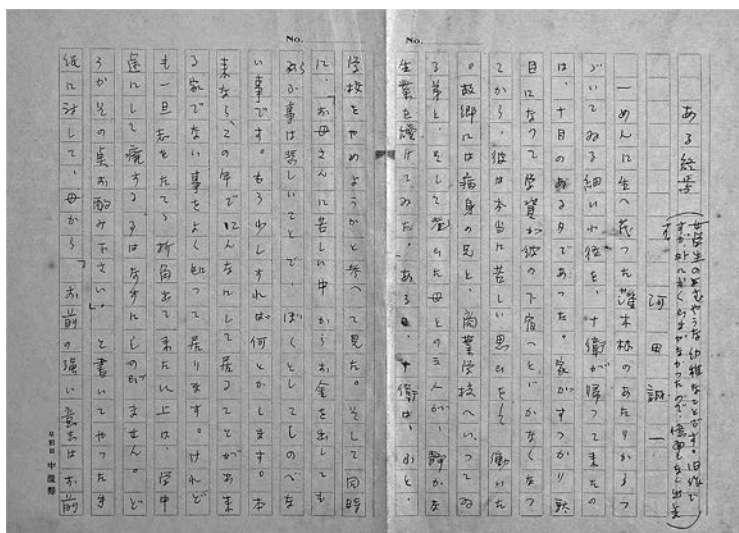 No.
ある終焉
(女学生のよむやうな幼稚なことです。旧作で
すが、外におくるものがなかつたので、
河田誠一
一めんに生へ茂つた灌木林のあたりからつ
づいてゐる細い小径を、十衛が帰つて来たの
は、十日の月のある夕であつた。家がすつかり駄
目になつて学資が彼の下宿へとどかなくなつ
てから、彼は本当に苦しい思ひをして働いた
。故郷には病身の兄と、商業学校へいつてゐ
る弟と、そして老いた母との三人が、静かな
生業を続けてゐた。ある日、十衛は、ふと、
No.
学校をやめようかと考へて見た。そして同時
に、「お母さんに苦しい中からお金を出しても
らふ事は悲しいことで、ぼくとしてしのべな
い事です。もう少しすれば何とかします。本
来なら、この年でこんなにして居ることがあま
る家でない事をよく知つて居ります。けれど
も一旦志をたてゝ折角出て来た以上は、学中
途にして廃するはなすにしのびません。ど
うかその点お酌み下さい。」と書いてやつた手
紙に対して、母から「お前の強い意志はお前